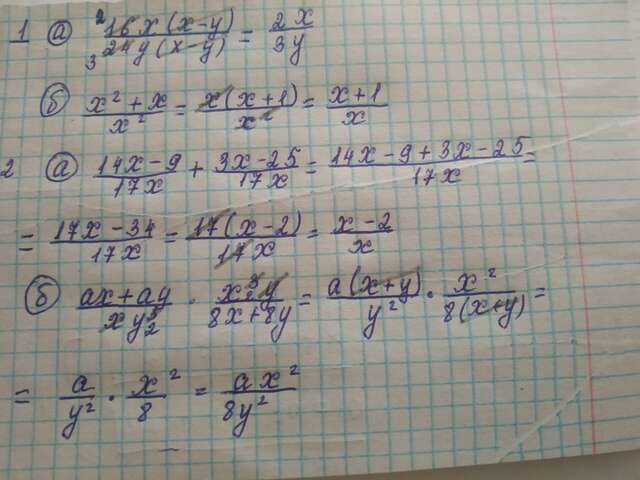 1 а) ²16x(x-y)/₃24y(x-y) = 2x/3y
б) x²+x/x² = x(x+1)/x² = x+1/x
2 а) 14x-9/17x + 3x-25/17x = 14x-9+3x-25/17x =
= 17x-34/17x = 17(x-2)/17x = x-2/x
б) ax+ay/xy³₂ · x³₂y/8x+8y = a(x+y)/y² · x²/8(x+y) =
= a/y² · x²/8 = ax²/8y²